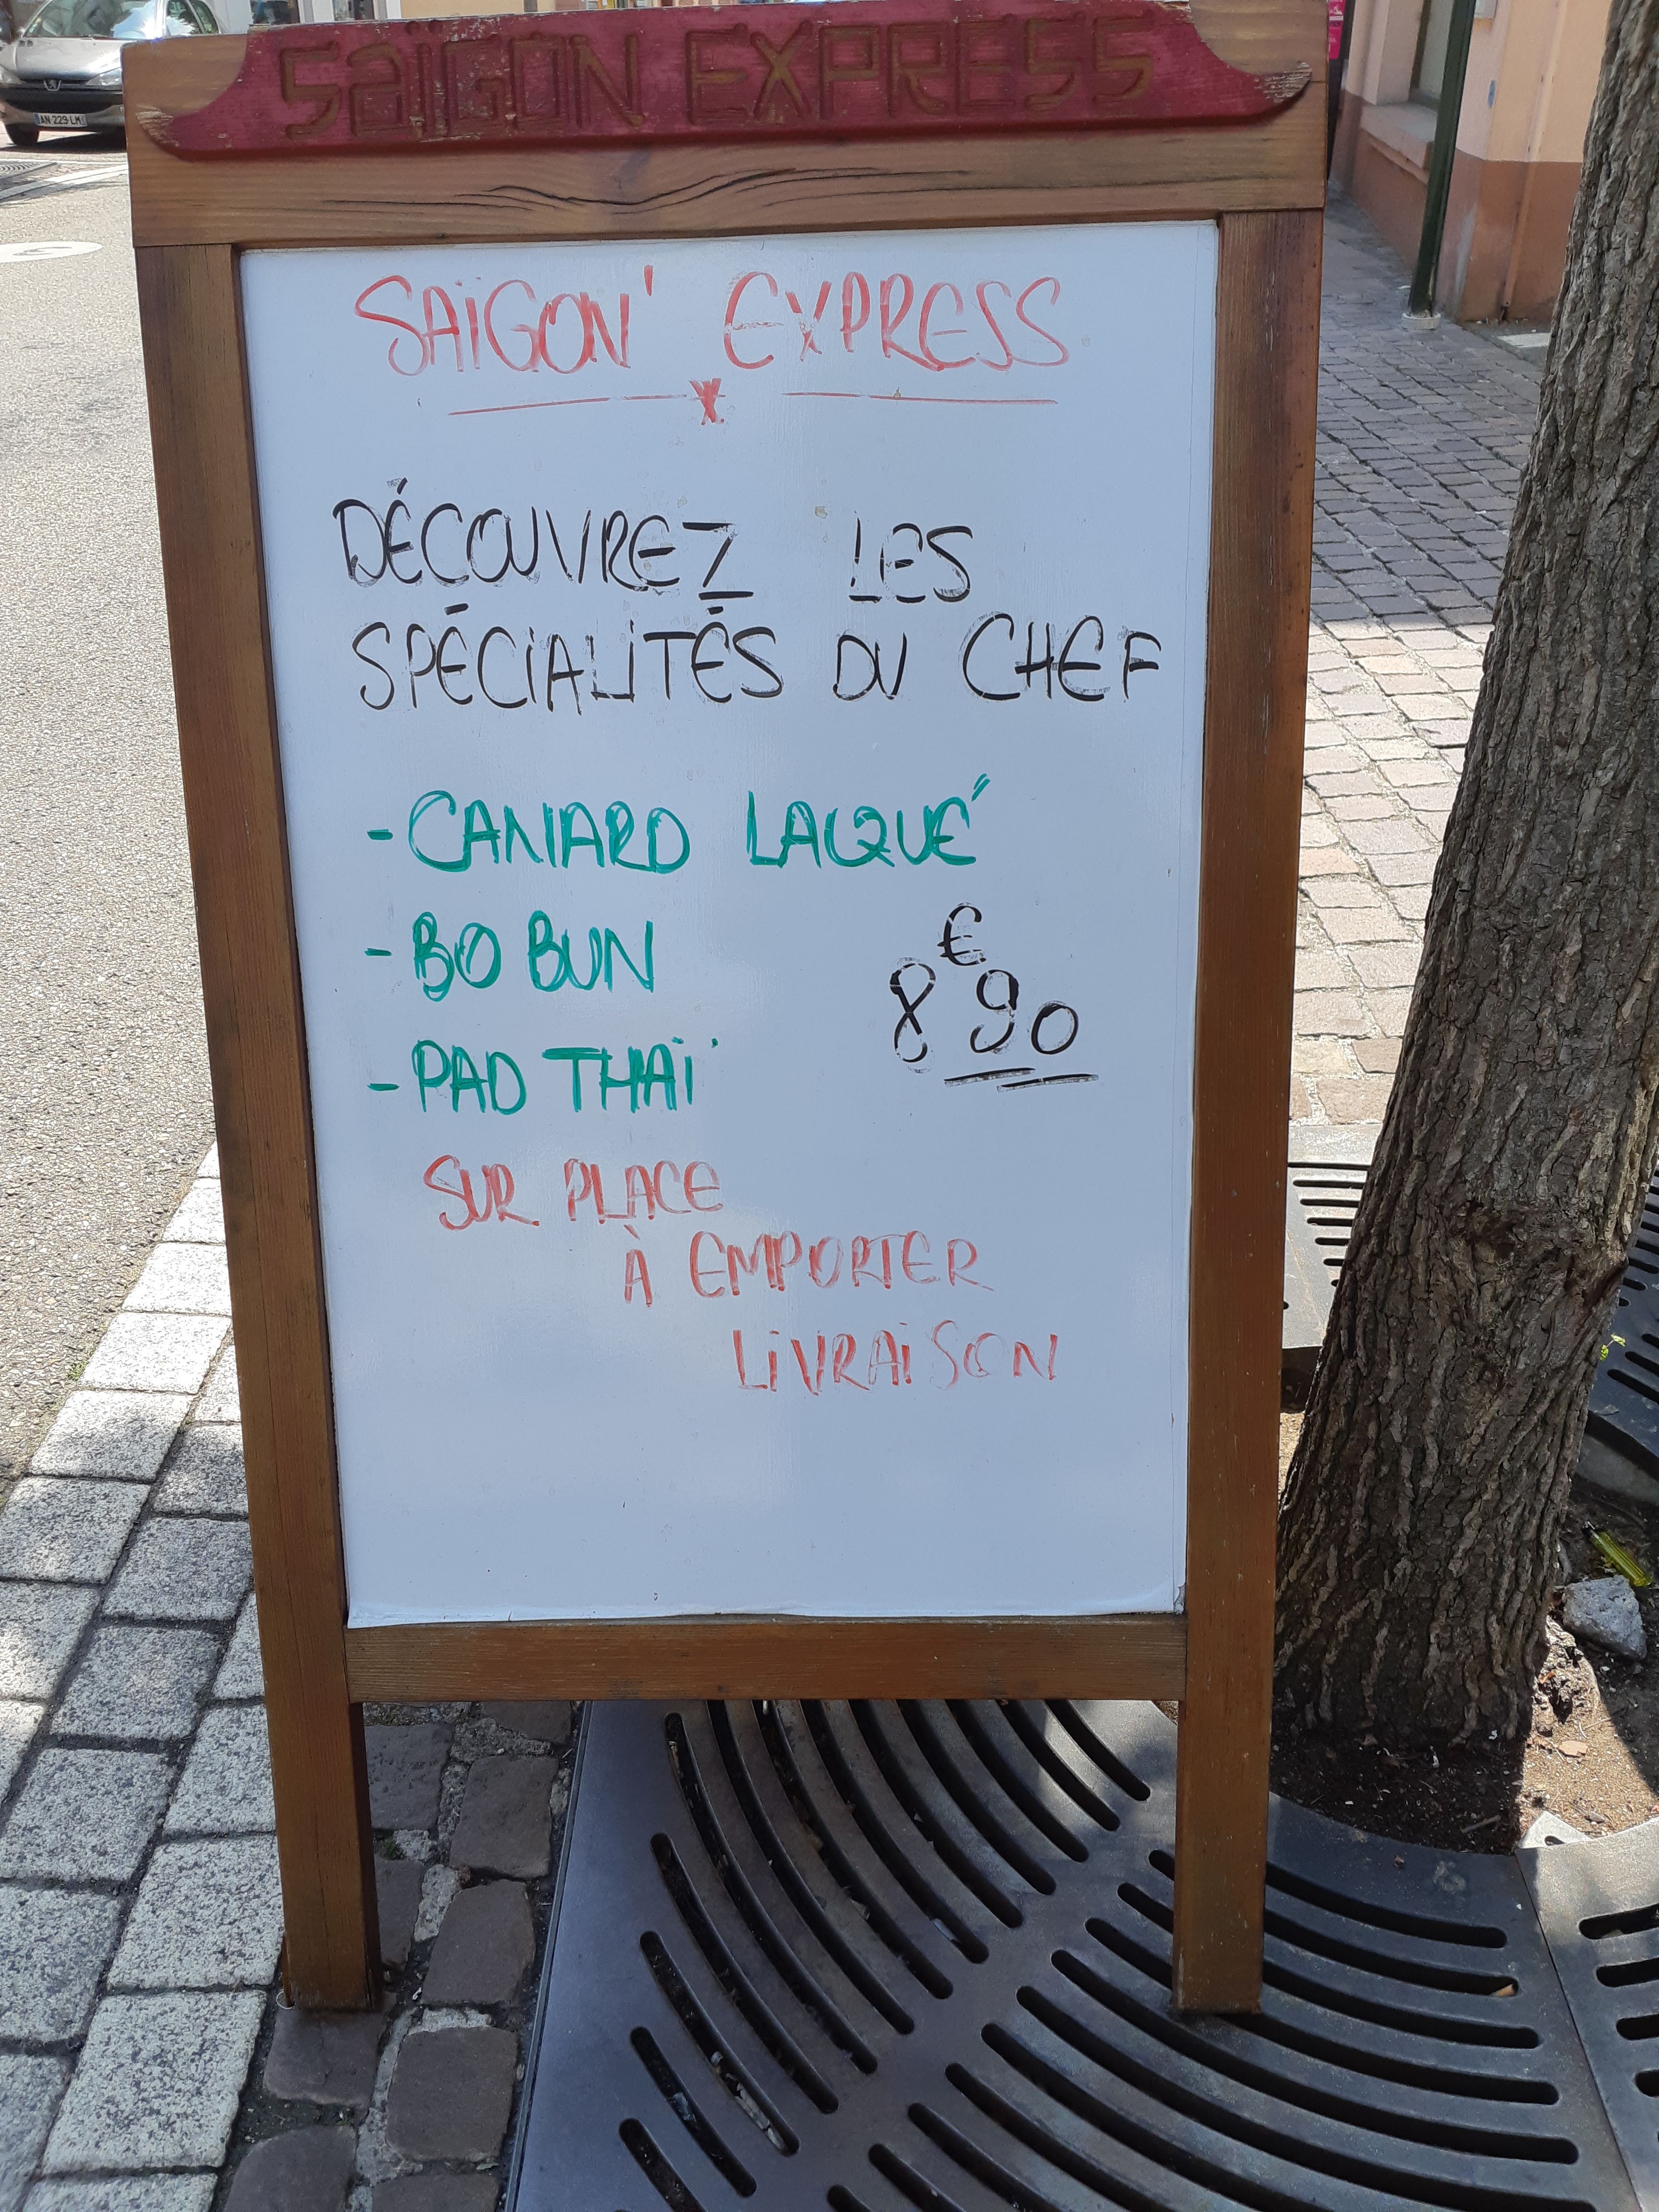 SAÏGON EXPRESS
AN 229 LM
SAÏGON' EXPRESS
DÉCOUVREZ LES
SPÉCIALITÉS DU CHEF
- CANARD LAQUÉ
- BO BUN
- PAD THAÏ
8€90
SUR PLACE
À EMPORTER
LIVRAISON